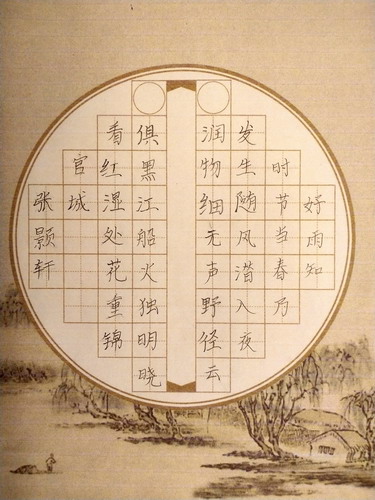 好雨知
时节当春乃
发生随风潜入夜
润物细无声野径云
俱黑江船火独明晓
看红湿处花重锦
官城
张颢轩